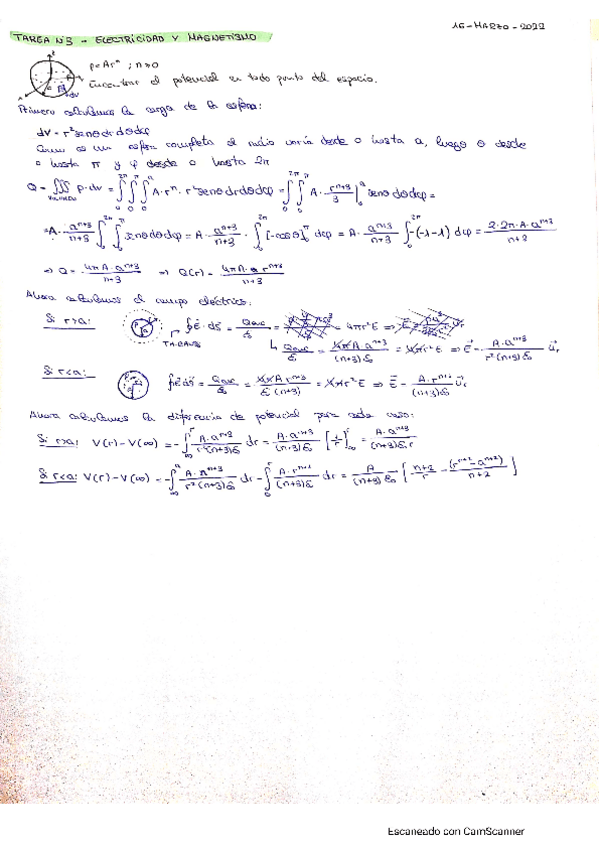 16-MARZO-2022
TAREA Nº3 - ELECTRICIDAD Y MAGNETISMO
ρ=Arⁿ ; n>0
Encontrar el potencial en todo punto del espacio.
Primero calculamos la carga de la esfera:
dV = r² senθ dr dθ dφ
Como es una esfera completa el radio varía desde 0 hasta a, luego θ desde
0 hasta π y φ desde 0 hasta 2π
Q = ∭ ρ·dv = ∫₀^2π ∫₀^π ∫₀ A·rⁿ·r² senθ dr dθ dφ = ∫₀^2π ∫₀^π A· r^(n+3)/3 |₀^a senθ dθ dφ =
= A· a^(n+3)/(n+3) ∫₀^2π ∫₀^π senθ dθ dφ = A· a^(n+3)/(n+3) · ∫₀^2π [-cosθ]₀^π dφ = A· a^(n+3)/(n+3) ∫₀^2π -(-1-1) dφ = 2·2π·A·a^(n+3)/(n+3)
⇒ Q = 4πA·a^(n+3)/(n+3) ⇒ Q(r) = 4πA· r^(n+3)/(n+3)
Ahora calculamos el campo eléctrico:
Si r>a: ∮E·ds = Qenc/ε₀ = 4πr²E ⇒
↳ Qenc/ε₀ = 4πA·a^(n+3)/((n+3)ε₀) = 4πr²E ⇒ E = A·a^(n+3)/(r²(n+3)ε₀) u_r
Si r<a: ∮E·ds = Qenc/ε₀ = 4πA r^(n+3)/(ε₀(n+3)) = 4πr²E ⇒ E = A·r^(n+1)/((n+3)ε₀) u_r
Ahora calculamos la diferencia de potencial para cada caso:
Si r>a: V(r)-V(∞) = -∫_∞^r A·a^(n+3)/(r²(n+3)ε₀) dr = A·a^(n+3)/((n+3)ε₀) [1/r]_∞^r = A·a^(n+3)/((n+3)ε₀r)
Si r<a: V(r)-V(∞) = -∫_∞^a A·a^(n+3)/(r²(n+3)ε₀) dr - ∫ A·r^(n+1)/((n+3)ε₀) dr = A/((n+3)ε₀) [ n+2/r - (r^(n+2)-a^(n+2))/(n+2) ]
Escaneado con CamScanner